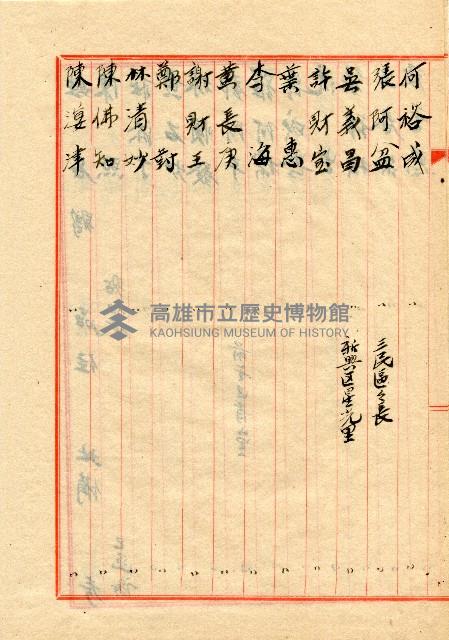 何裕成 〃 〃
張阿盆 三民區々長 〃
吳義昌 新興区星光里 〃
許財宝 〃 〃
葉惠 〃 〃
李海 〃 〃
黃長庚 〃 〃
謝財王 〃 〃
鄭對 〃 〃
林清妙 〃 〃
陳佛知 〃 〃
陳準津 〃 〃
高雄市立歷史博物館
KAOHSIUNG MUSEUM OF HISTORY